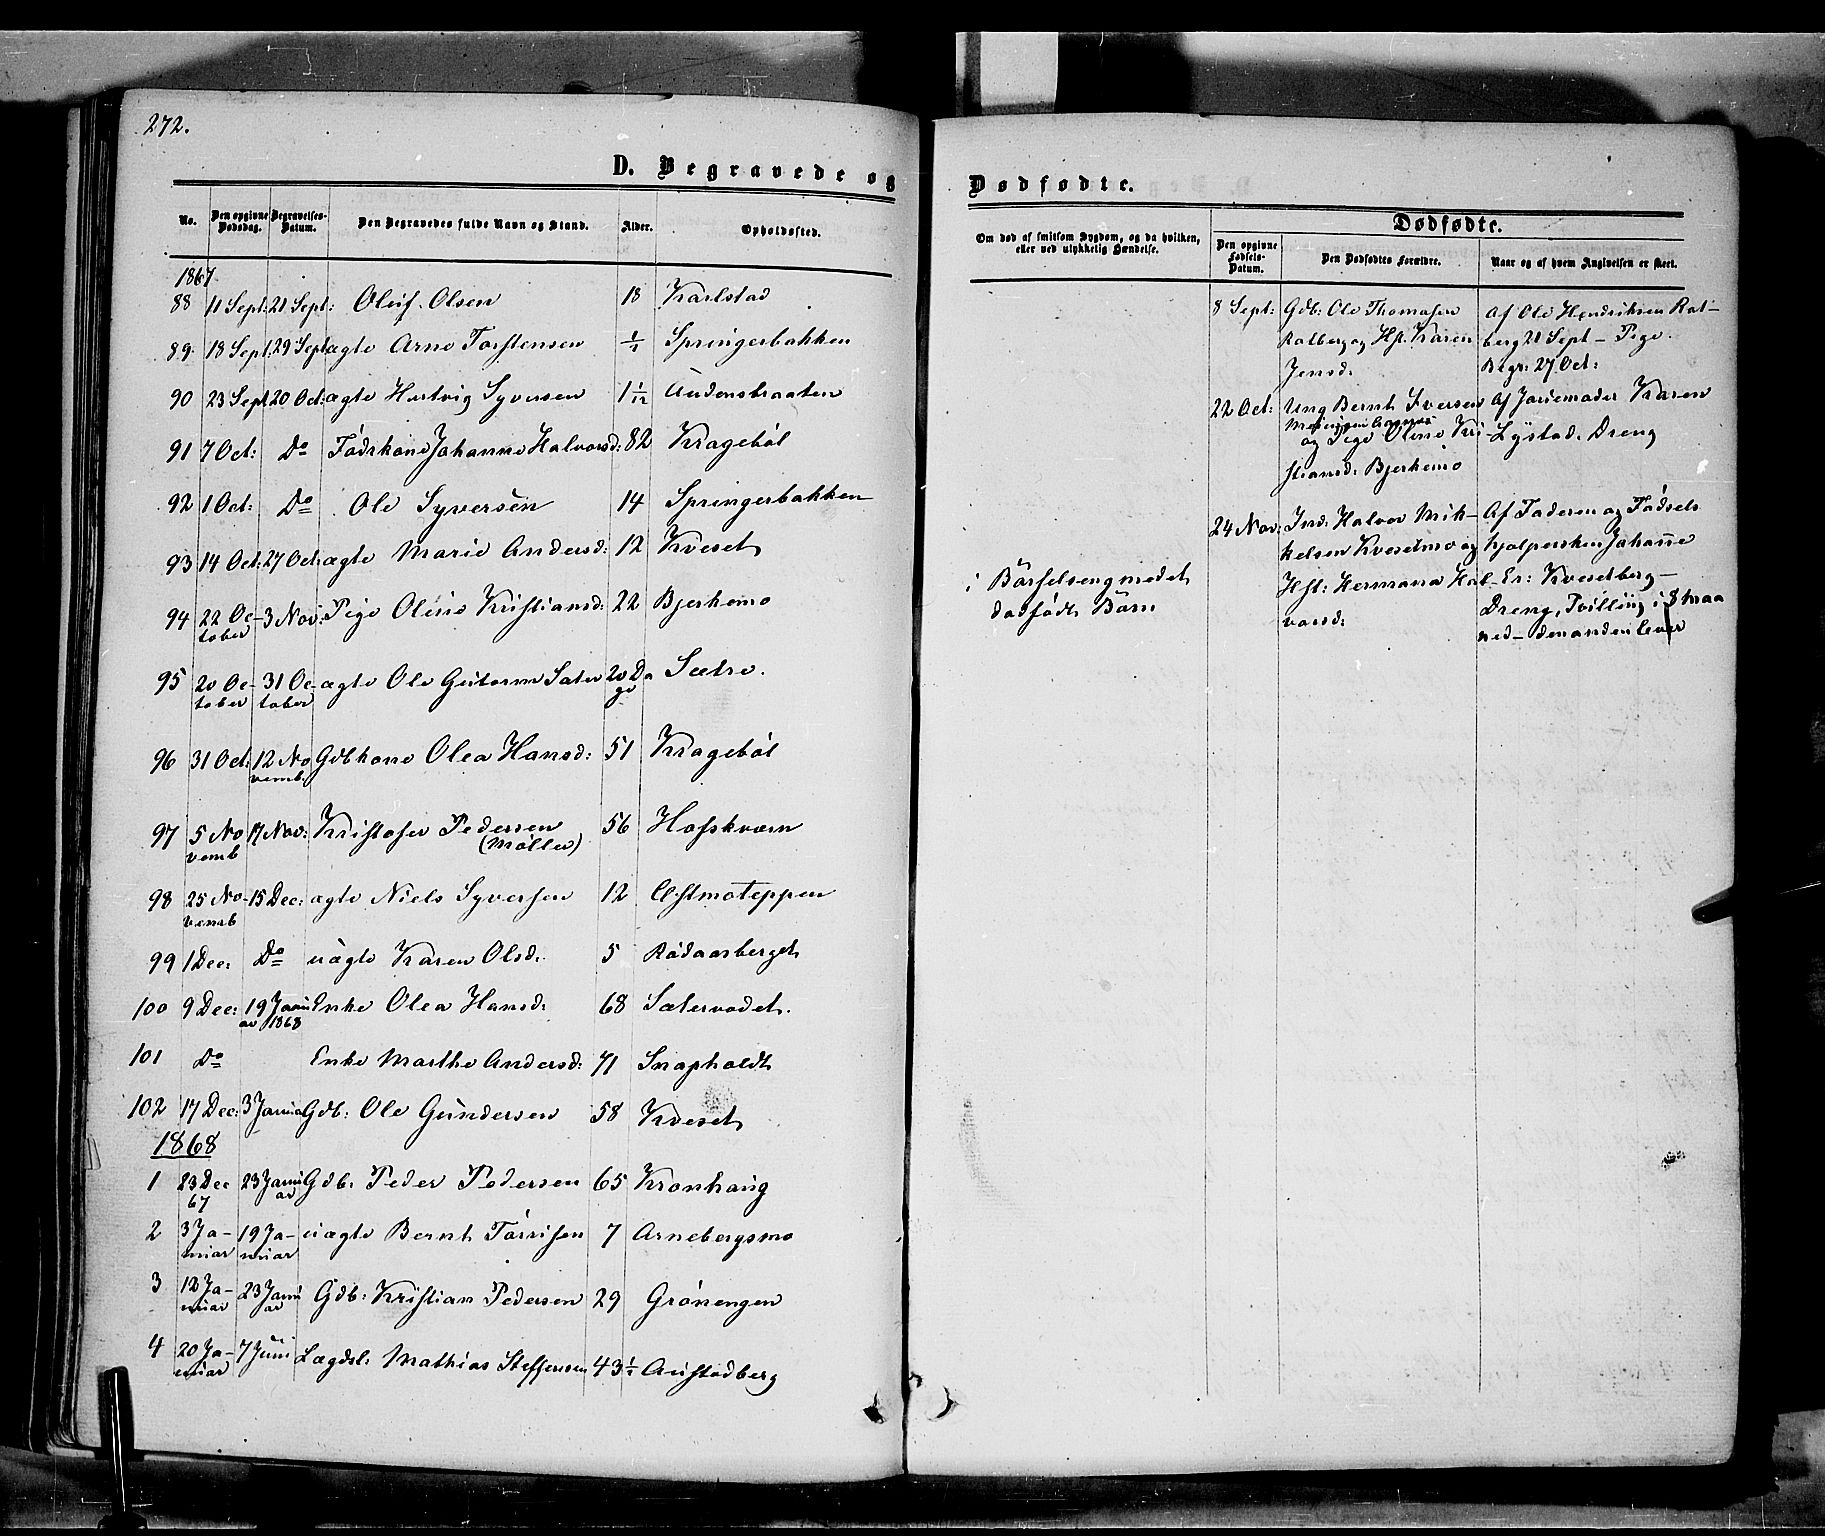 272.
D. Begravede og
No. Den opgivne Dødsdag. Begravelses-Datum. Den Begravedes fulde Navn og Stand. Alder. Opholdssted.
1867
88 11 Sept: 21 Sept: Oluf Olsen 18 Karlstad
89. 18 Sept. 29 Sept ægte Arne Torstensen ½ Springerbakken
90 23 Sept 20 Oct: ægte Hertvig Syversen 1 1/12 Audensbraaten
91 7 Oct: Do Födrkone Johanne Halvorsd: 82 Kragebøl
92 1 Oct: Do Ole Syversen 14 Springerbakken
93 14 Oct: 27 Oct: ægte Marie Andersd: 12 Kveset
94 22 October 3 Nov: Pige Oline Kristiansd: 22 Bjerkemo
95 20 October 31 October ægte Ole Guttorm Sater 20 Dage Sætre.
96 31 Oct: 12 Novemb: Gdbkone Olea Hansd: 51 Kragebøl
97 5 Novemb 17 Nov: Kristofer Pedersen (Møller) 56 Hofskværn
98 25 Novemb 15 Dec: ægte Niels Syversen 12 Østmoteppen
99 1 Dec: Do uægte Karen Olsd: 5 Rödaasberget
100 9 Dec: 19 Januar 1868 Enke Olea Hansd: 68 Sætervadet.
101 Do Enke Marthe Andersd: 71 Snapholdt
102 17 Dec: 3 Janua Gdb: Ole Gundersen 58 Kveset
1868
1 23 Dec 67 23 Januar Gdb: Peder Pedersen 65 Kronhaug
2 3 Januar 19 Januar uægte Bernt Törrisen 7 Arnebergsmo
3 12 Januar 23 Januar Gdb: Kristian Pedersen 29 Grönengen
4 20 Januar 7 Juni Lægdsl: Mathias Steffensen 43 ½ Austadberg
Dødfødte.
Om død af smitsom Sygdom, og da hvilken, eller ved ulykkelig Hændelse.
Dødfødte.
Den opgivne Fødsels-Datum. Den Dødfødtes Forældre. Naar og af hvem Angivelsen er skeet.
8 Sept: Gdb: Ole Thomasen
Rotberg og Hst. Karen
Jensd:
Af Ole Hendriksen Rot-
berg 21 Sept – Pige.
Begr: 27 Oct:
22 Oct: Ung Bernt Iversen
og Pige Oline Kri-
stiansd: Bjerkemo
Af Jordemoder Karen
Lystad. Dreng
i Barselseng med et
dødfødt Barn
24 Nov: Ind: Halvor Mik-
kelsen Kvesetmo og
Hst: Hermana Hal-
vorsd:
Af Faderen og Födsels
hjælpersken Johanne
Er: Kvesetberg –
Dreng, Tvilling i 8 Maa
ned – den anden lever